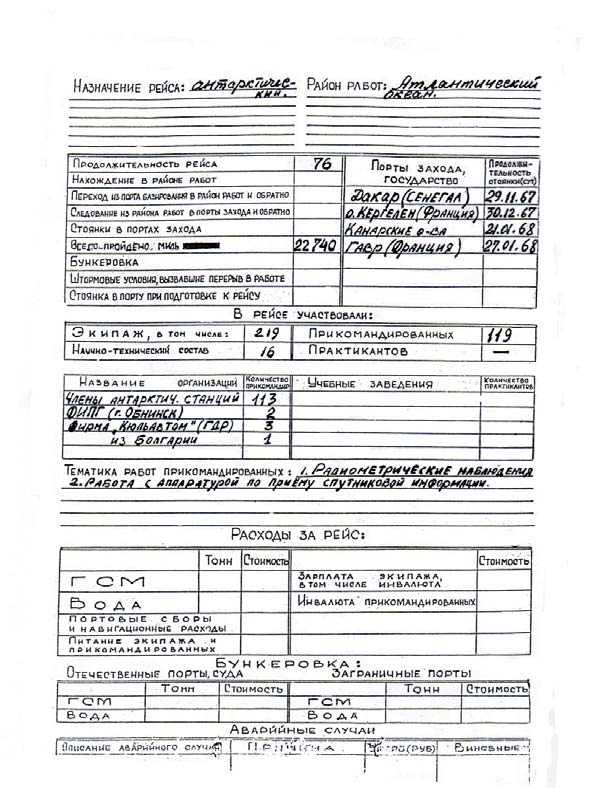 Назначение рейса: антарктичес- Район работ: Атлантический
кий. океан.
Продолжительность рейса 76 Порты захода, государство Продолжительность стоянки (сут)
Нахождение в районе работ
Переход из порта базирования в район работ и обратно Дакар (Сенегал) 29.11.67
Следование из района работ в порты захода и обратно о. Кергелен (Франция) 30.12.67
Стоянки в портах захода Канарские о-ва 21.01.68
Всего пройдено миль 22740 Гавр (Франция) 27.01.68
Бункеровка
Штормовые условия, вызвавшие перерыв в работе
Стоянка в порту при подготовке к рейсу
В рейсе участвовали:
Экипаж, в том числе: 219 Прикомандированных 119
Научно-технический состав 16 Практикантов —
Название организаций Количество прикомандир. Учебные заведения Количество практикантов
Члены антарктич. станций 113
ФИПГ (г. Обнинск) 2
Фирма „Кюльавтом" (ГДР) 3
из Болгарии 1
Тематика работ прикомандированных: 1. Радиометрические наблюдения
2. Работа с аппаратурой по приёму спутниковой информации.
Расходы за рейс:
Тонн Стоимость Стоимость
ГСМ Зарплата экипажа, в том числе инвалюта
Вода Инвалюта прикомандированных
Портовые сборы и навигационные расходы
Питание экипажа и прикомандированных
Бункеровка:
Отечественные порты, суда Заграничные порты
Тонн Стоимость Тонн Стоимость
ГСМ ГСМ
Вода Вода
Аварийные случаи
Описание аварийного случая Причина (руб) Виновные